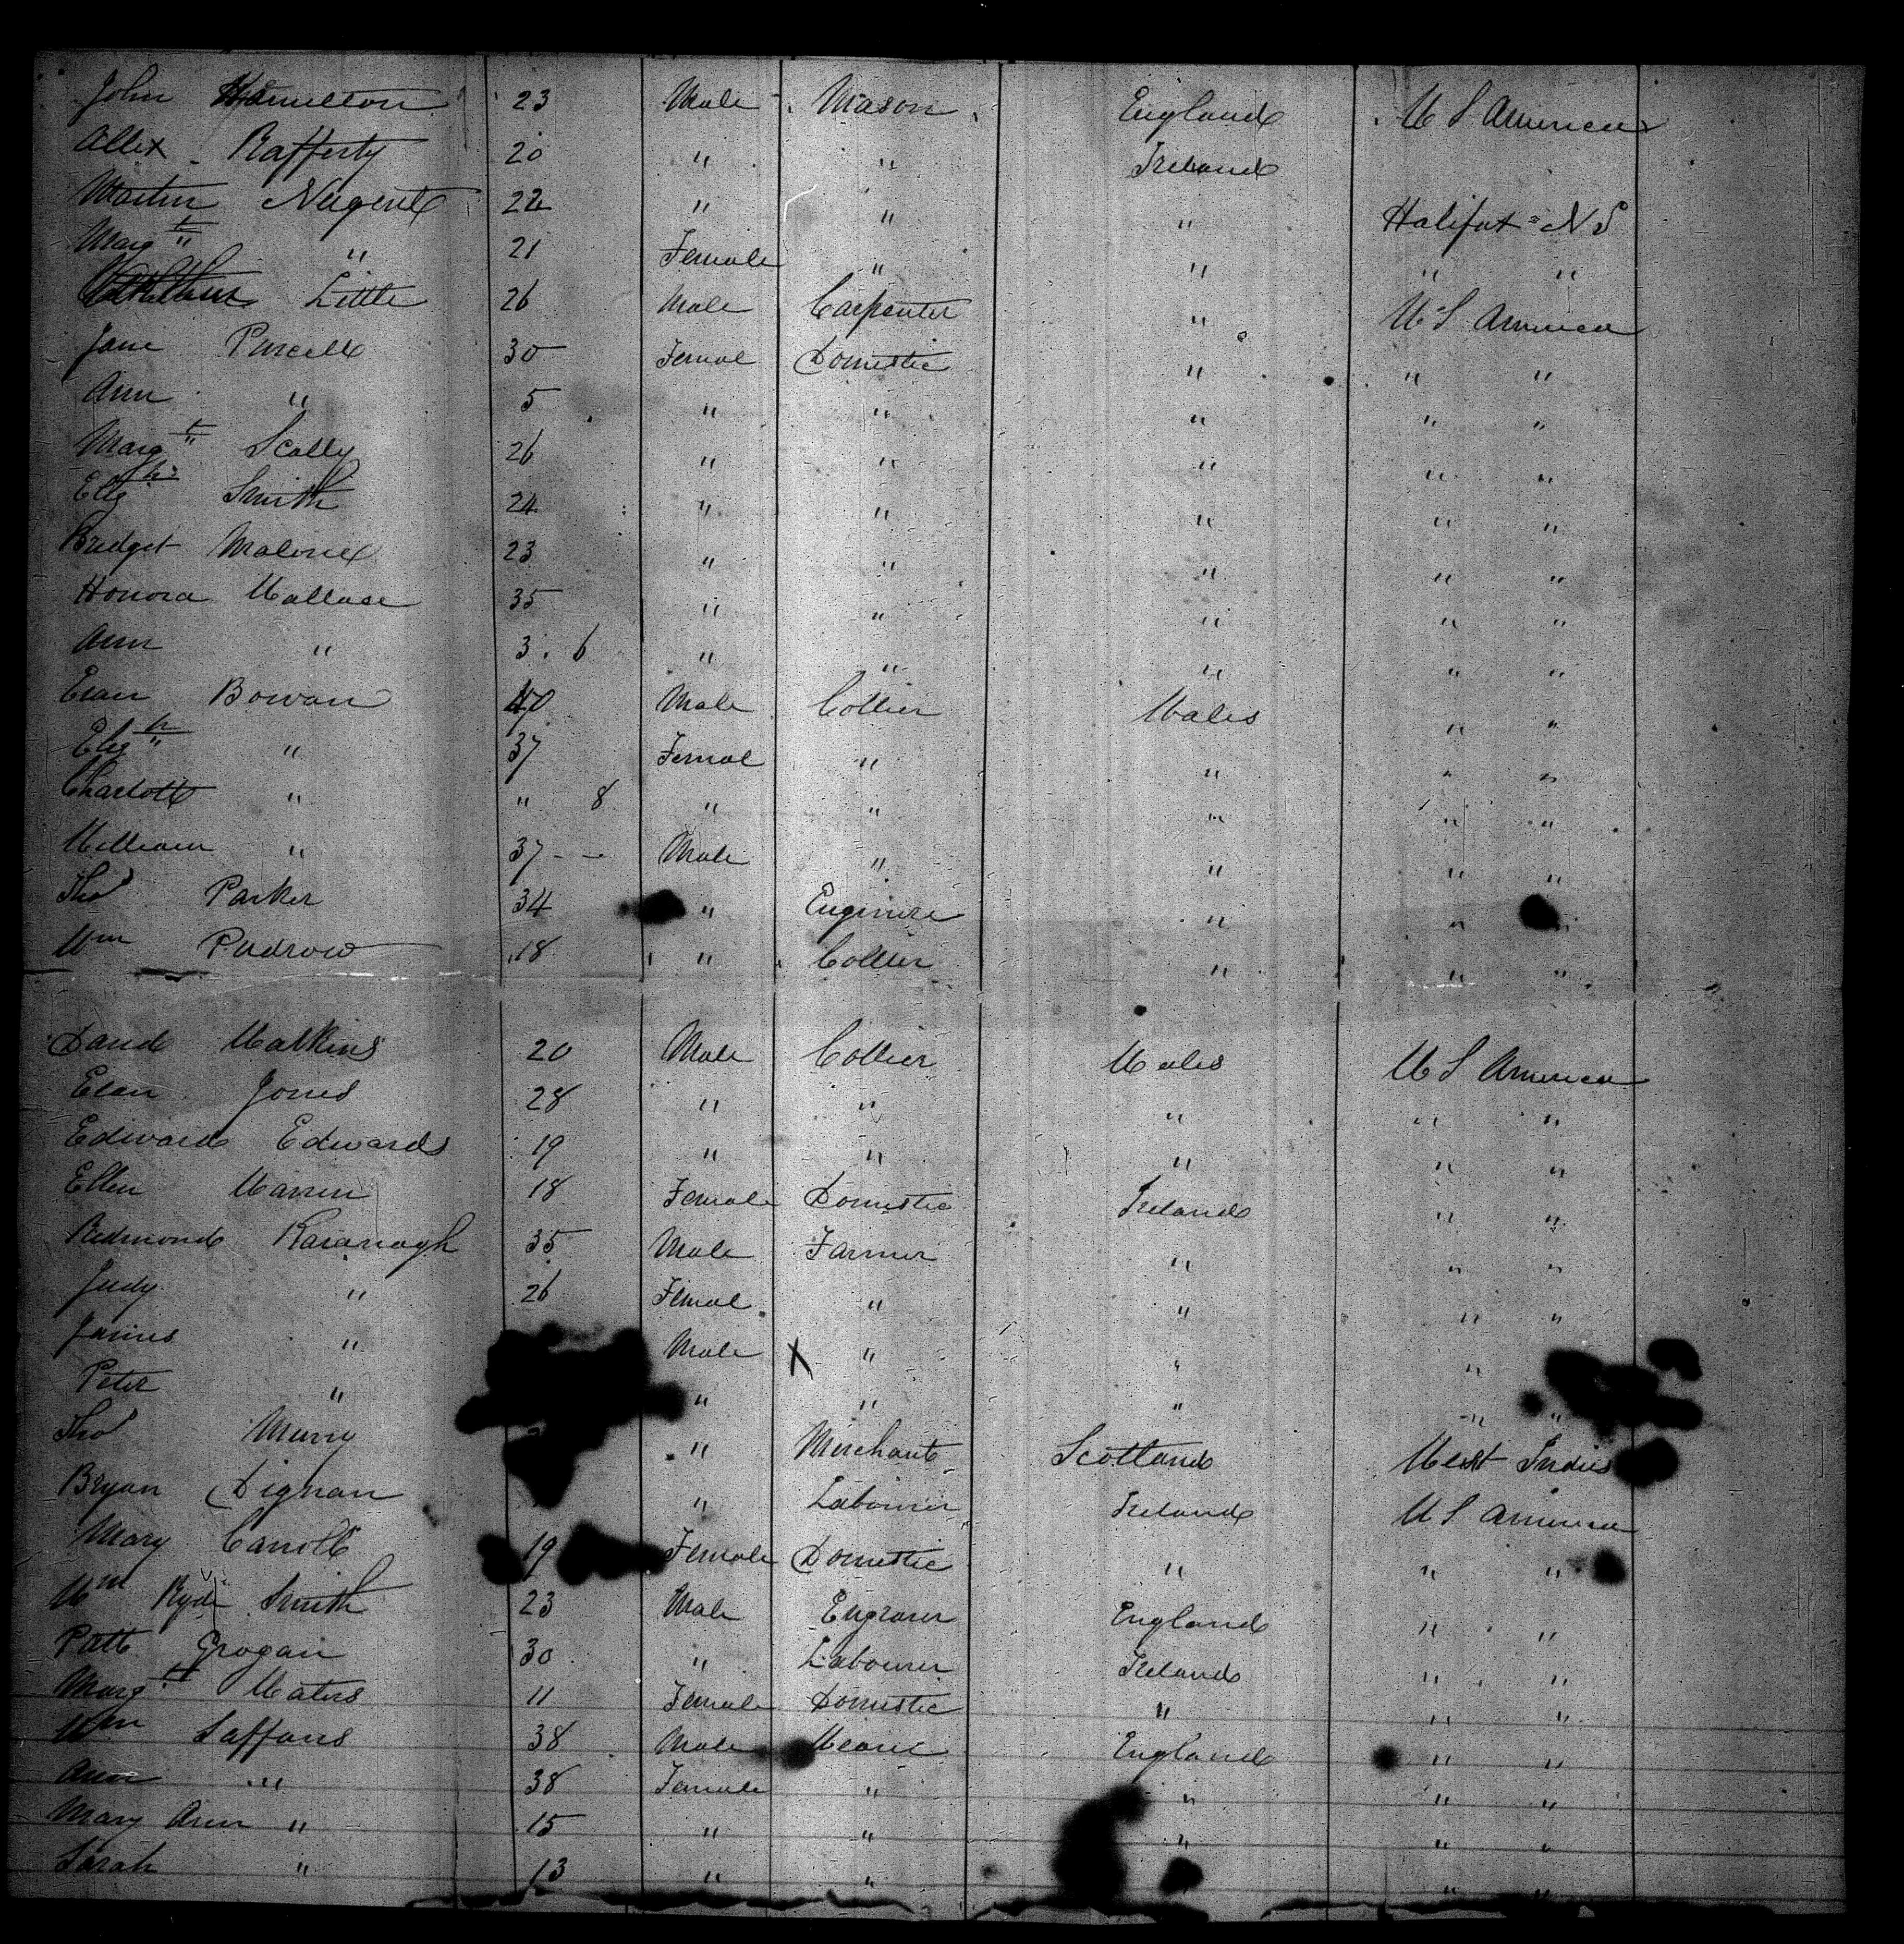 John Hamilton 23 Male Mason England U S America
Allex Rafferty 20 " " Ireland
Martin Nugent 22 " " " Halifax N S
Margt " 21 Female " " " "
Little 26 Male Carpenter " U S America
Jane Purcell 30 Femal Domestic " " "
Ann " 5 " " " " "
Margt Scally 26 " " " " "
Elizh Smith 24 " " " " "
Bridget Malone 23 " " " " "
Honora Wallace 35 " " " " "
Ann " 3 . 6 " " " " "
Evan Bowan 40 Male Collier Wales " "
Elizh " 37 Femal " " " "
Charlott " " 8 " " " " "
William " 37 - - Male " " " "
Thos Parker 34 " Engineer " " "
Wm Padrow 18 " Collier " " "
David Watkins 20 Male Collier Wales U S America
Evan Jones 28 " " " " "
Edward Edwards 19 " " " " "
Ellen Warren 18 Female Domestic Ireland " "
Redmond Kavanagh 35 Male Farmer " " "
Judy " 26 Femal " " " "
James " Male X " " "
Peter " " " " " "
Thos Murry " Merchant Scotland West Indies
Bryan Dignan " Labourer Ireland U S America
Mary Carroll 19 Female Domestic " " "
Wm Ryde Smith 23 Male Engraver England " "
Patt Grogan 30 " Labourer Ireland " "
Margt Waters 11 Female Domestic " " "
Wm Saffans 38 Male England " "
Ann " 38 Female " " " "
Mary Ann " 15 " " " " "
Sarah " 13 " " " "